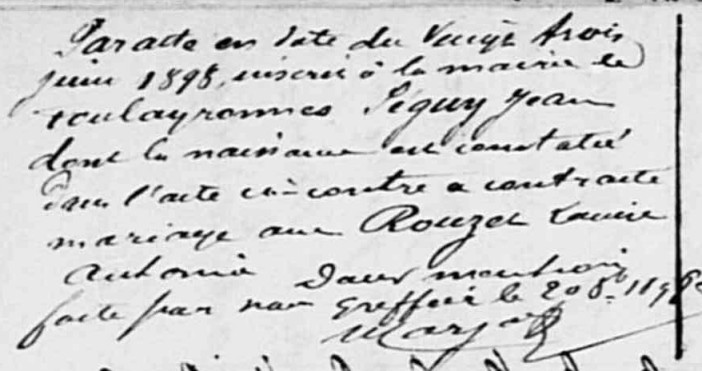 Par acte en date du Vingt trois
juin 1898, inscrit à la mairie de
Foulayronnes Séguy Jean
dont la naissance est constatée
dans l'acte ci-contre a contracté
mariage avec Rouzet Laurie
Antonia Dont mention
faite par nous Greffier le 20 8.